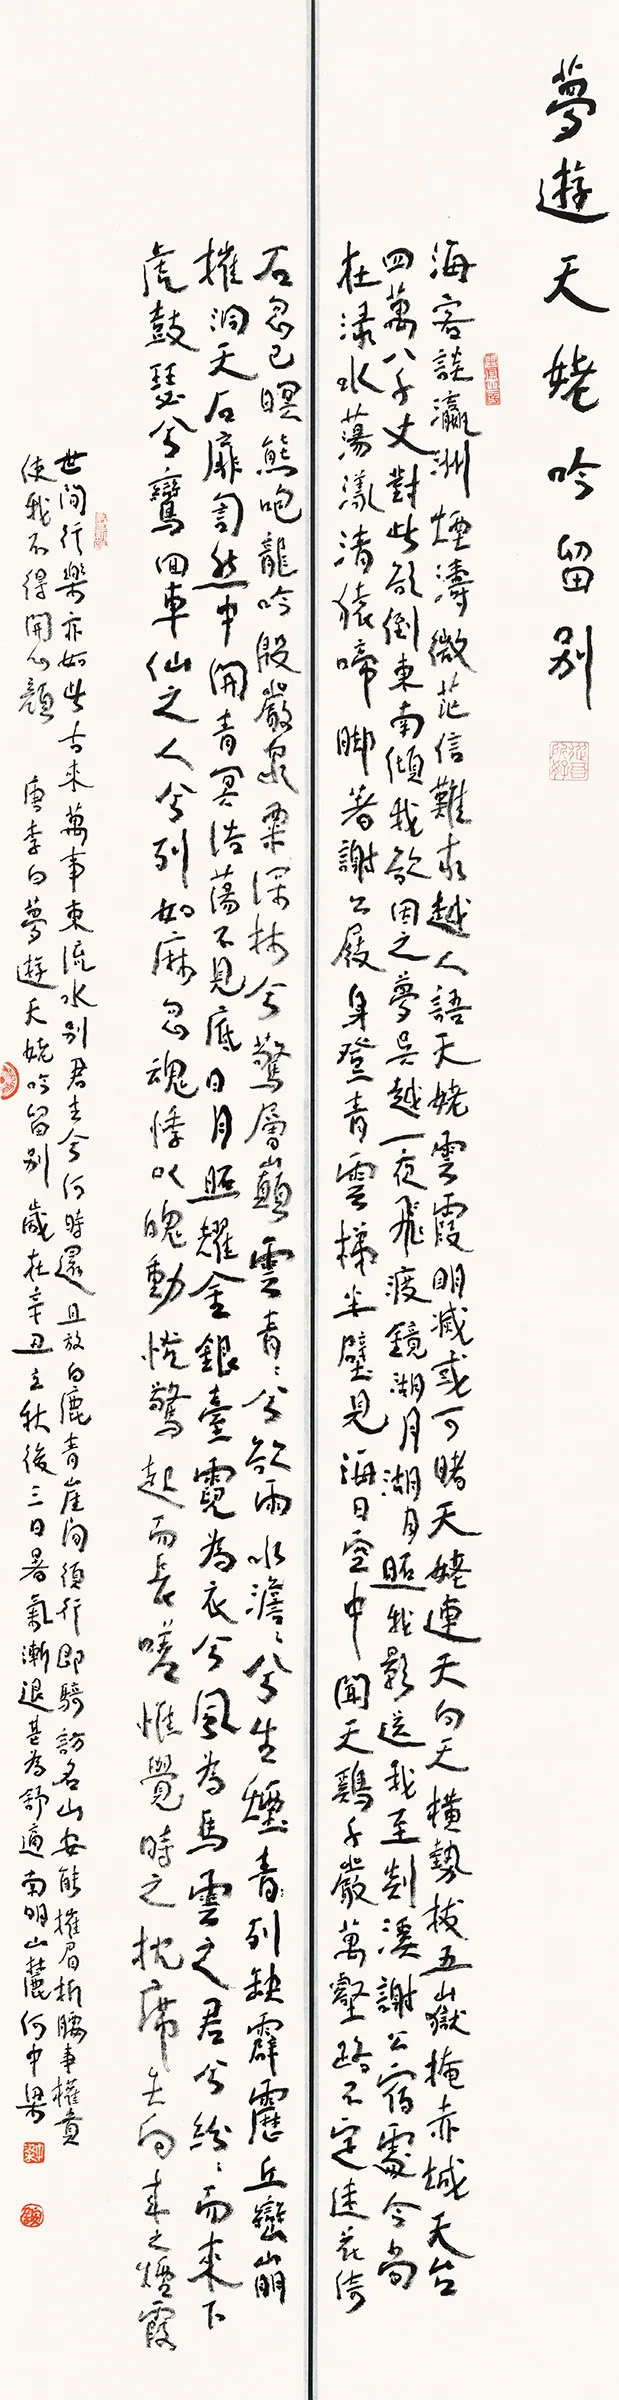 夢遊天姥吟留別
海客談瀛洲煙濤微茫信難求越人語天姥雲霞明滅或可睹天姥連天向天橫勢拔五嶽掩赤城天台
四萬八千丈對此欲倒東南傾我欲因之夢吳越一夜飛渡鏡湖月湖月照我影送我至剡溪謝公宿處今尚
在淥水蕩漾清猿啼腳著謝公屐身登青雲梯半壁見海日空中聞天雞千巖萬壑路不定迷花倚
石忽已暝熊咆龍吟殷巖泉栗深林兮驚層巔雲青々兮欲雨水澹々兮生煙青列缺霹靂丘巒崩
摧洞天石扉訇然中開青冥浩蕩不見底日月照耀金銀臺霓為衣兮風為馬雲之君兮紛々而來下
虎鼓瑟兮鸞回車仙之人兮列如麻忽魂悸以魄動怳驚起而長嗟惟覺時之枕席失向來之煙霞
世間行樂亦如此古來萬事東流水別君去兮何時還且放白鹿青崖間須行即騎訪名山安能摧眉折腰事權貴
使我不得開心顏 唐李白夢遊天姥吟留別 歲在辛丑立秋後三日暑氣漸退甚為舒適南明山麓何中梁